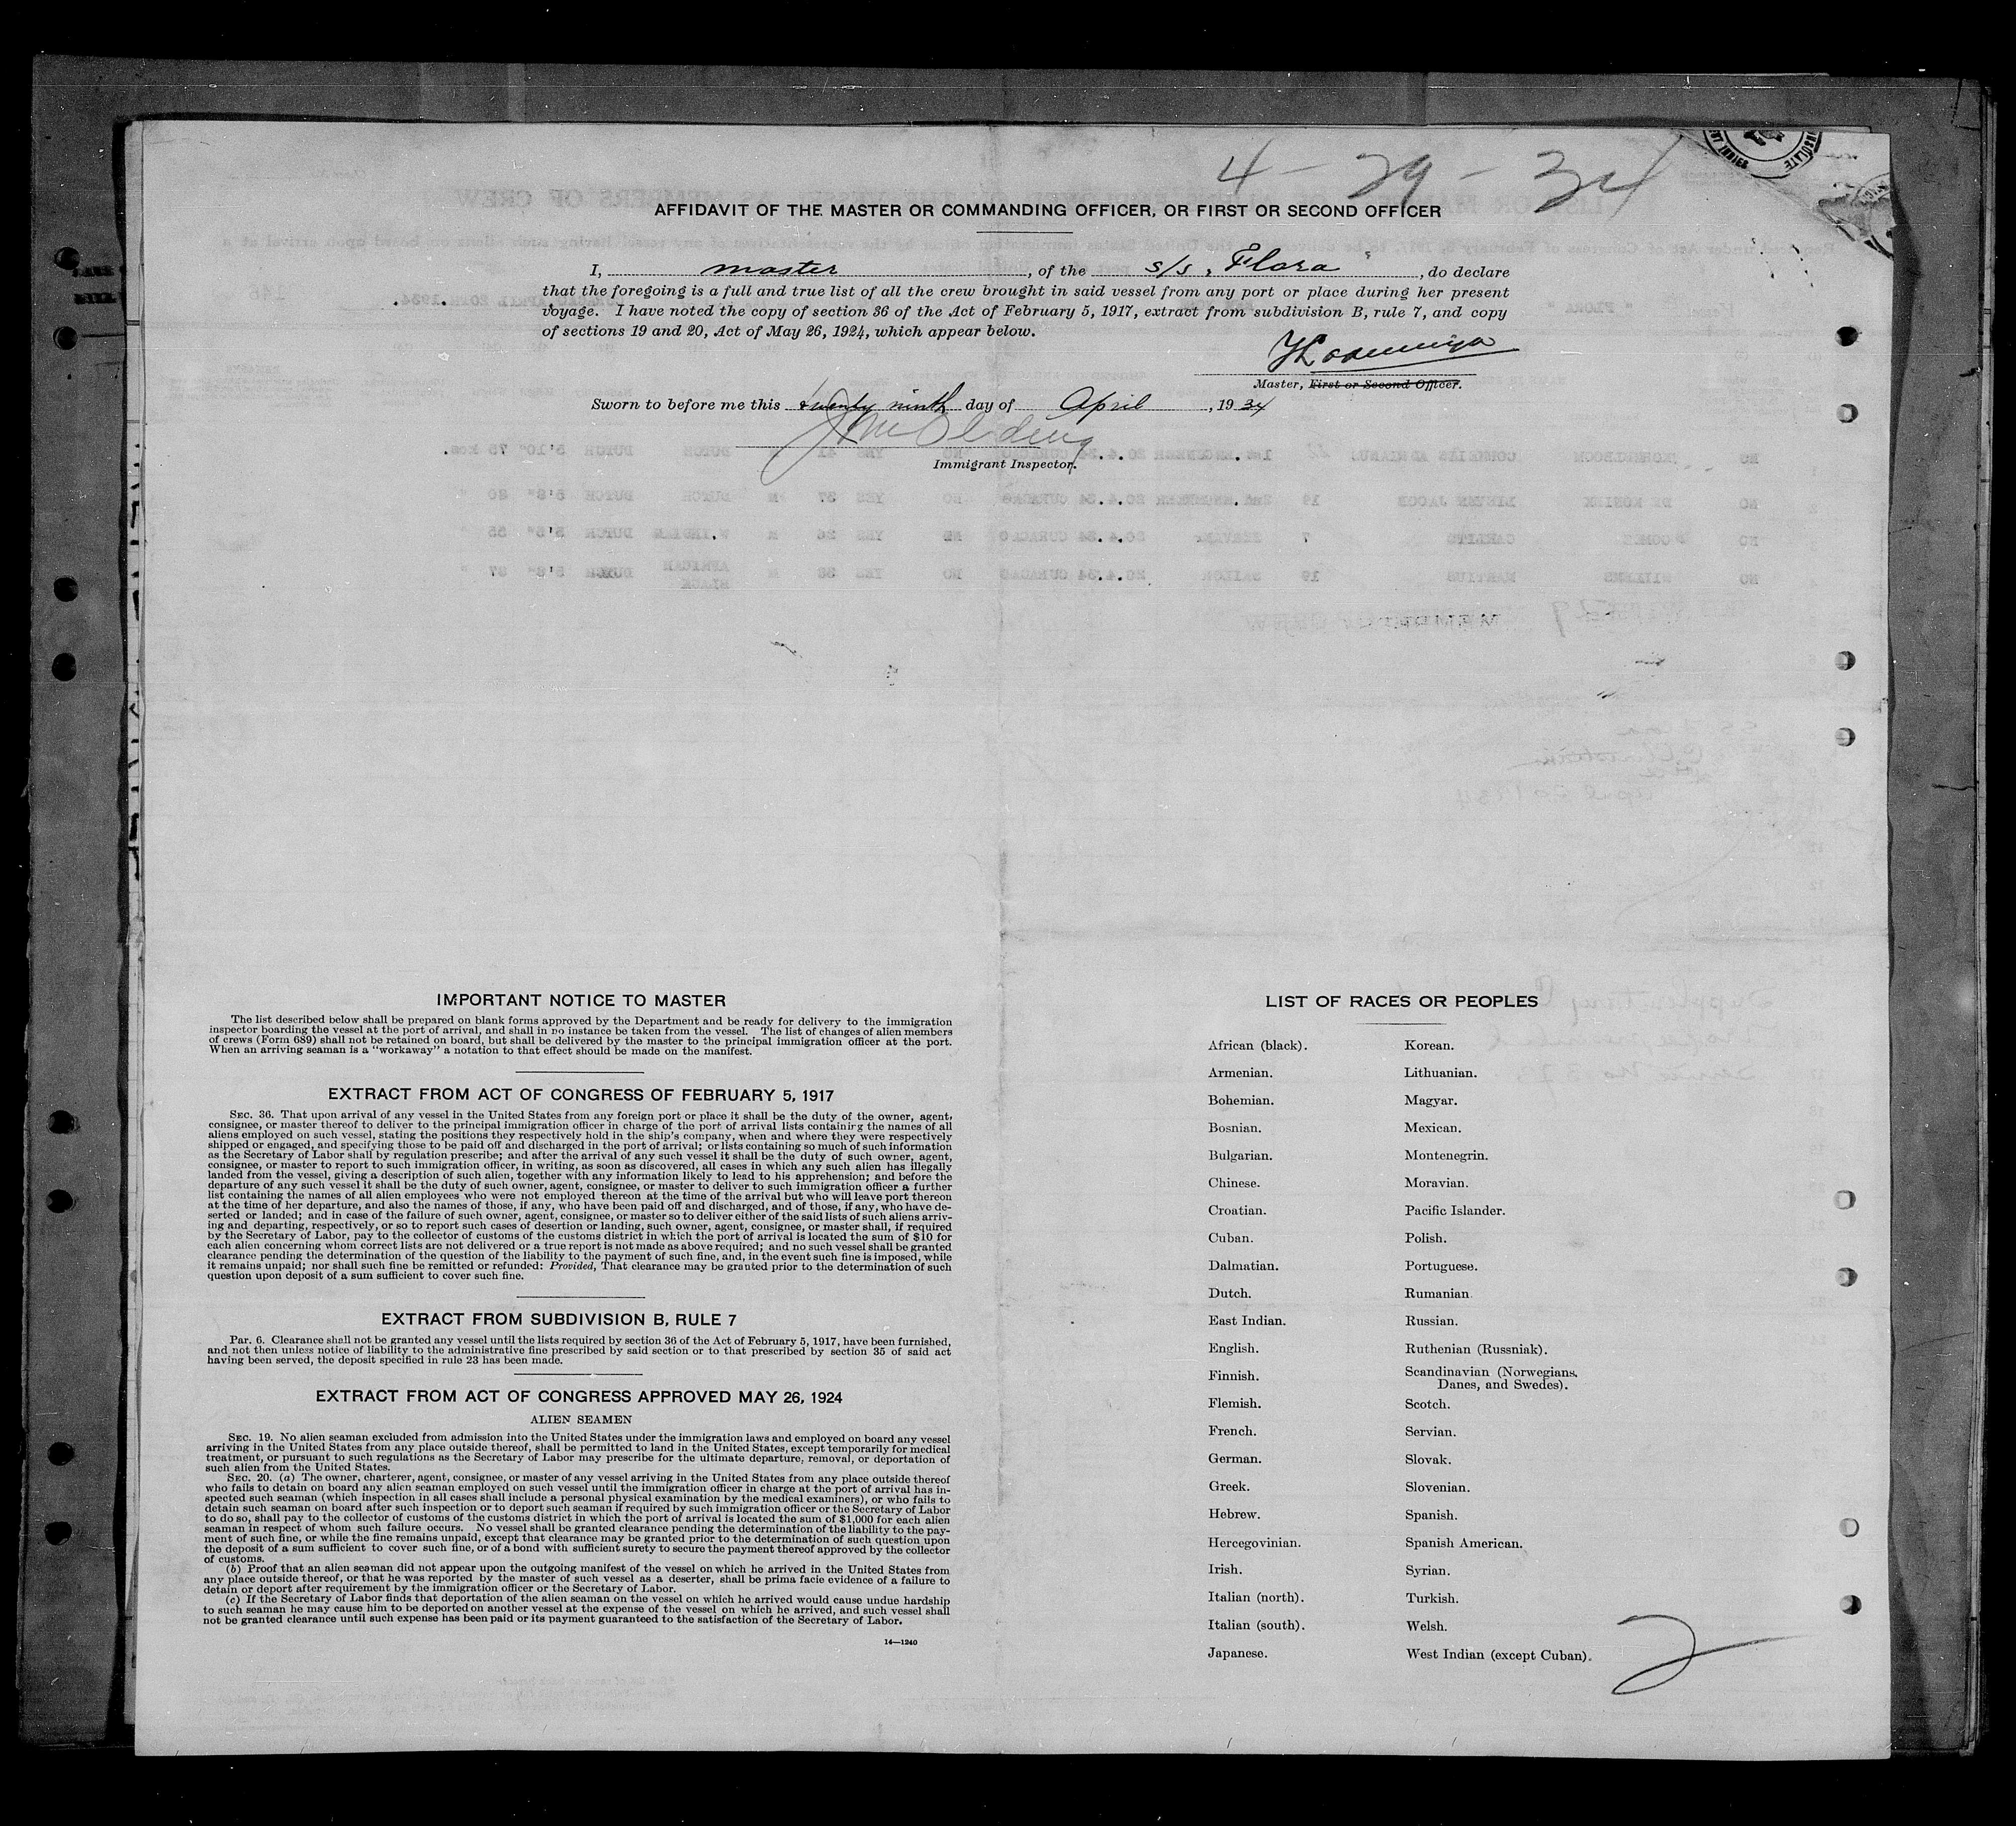 4-29-34
AFFIDAVIT OF THE MASTER OR COMMANDING OFFICER, OR FIRST OR SECOND OFFICER
I, master, of the s/s, Flora, do declare
that the foregoing is a full and true list of all the crew brought in said vessel from any port or place during her present
voyage. I have noted the copy of section 36 of the Act of February 5, 1917, extract from subdivision B, rule 7, and copy
of sections 19 and 20, Act of May 26, 1924, which appear below.
Master, First or Second Officer.
Sworn to before me this twenty ninth day of April, 1934
Immigrant Inspector.
IMPORTANT NOTICE TO MASTER
The list described below shall be prepared on blank forms approved by the Department and be ready for delivery to the immigration
inspector boarding the vessel at the port of arrival, and shall in no instance be taken from the vessel. The list of changes of alien members
of crews (Form 689) shall not be retained on board, but shall be delivered by the master to the principal immigration officer at the port.
When an arriving seaman is a "workaway" a notation to that effect should be made on the manifest.
EXTRACT FROM ACT OF CONGRESS OF FEBRUARY 5, 1917
SEC. 36. That upon arrival of any vessel in the United States from any foreign port or place it shall be the duty of the owner, agent,
consignee, or master thereof to deliver to the principal immigration officer in charge of the port of arrival lists containing the names of all
aliens employed on such vessel, stating the positions they respectively hold in the ship's company, when and where they were respectively
shipped or engaged, and specifying those to be paid off and discharged in the port of arrival; or lists containing so much of such information
as the Secretary of Labor shall by regulation prescribe; and after the arrival of any such vessel it shall be the duty of such owner, agent,
consignee, or master to report to such immigration officer, in writing, as soon as discovered, all cases in which any such alien has illegally
landed from the vessel, giving a description of such alien, together with any information likely to lead to his apprehension; and before the
departure of any such vessel it shall be the duty of such owner, agent, consignee, or master to deliver to such immigration officer a further
list containing the names of all alien employees who were not employed thereon at the time of the arrival but who will leave port thereon
at the time of her departure, and also the names of those, if any, who have been paid off and discharged, and of those, if any, who have de-
serted or landed; and in case of the failure of such owner, agent, consignee, or master so to deliver either of the said lists of such aliens arriv-
ing and departing, respectively, or so to report such cases of desertion or landing, such owner, agent, consignee, or master shall, if required
by the Secretary of Labor, pay to the collector of customs of the customs district in which the port of arrival is located the sum of $10 for
each alien concerning whom correct lists are not delivered or a true report is not made as above required; and no such vessel shall be granted
clearance pending the determination of the question of the liability to the payment of such fine, and, in the event such fine is imposed, while
it remains unpaid; nor shall such fine be remitted or refunded: Provided, That clearance may be granted prior to the determination of such
question upon deposit of a sum sufficient to cover such fine.
EXTRACT FROM SUBDIVISION B, RULE 7
Par. 6. Clearance shall not be granted any vessel until the lists required by section 36 of the Act of February 5, 1917, have been furnished,
and not then unless notice of liability to the administrative fine prescribed by said section or to that prescribed by section 35 of said act
having been served, the deposit specified in rule 23 has been made.
EXTRACT FROM ACT OF CONGRESS APPROVED MAY 26, 1924
ALIEN SEAMEN
SEC. 19. No alien seaman excluded from admission into the United States under the immigration laws and employed on board any vessel
arriving in the United States from any place outside thereof, shall be permitted to land in the United States, except temporarily for medical
treatment, or pursuant to such regulations as the Secretary of Labor may prescribe for the ultimate departure, removal, or deportation of
such alien from the United States.
SEC. 20. (a) The owner, charterer, agent, consignee, or master of any vessel arriving in the United States from any place outside thereof
who fails to detain on board any alien seaman employed on such vessel until the immigration officer in charge at the port of arrival has in-
spected such seaman (which inspection in all cases shall include a personal physical examination by the medical examiners), or who fails to
detain such seaman on board after such inspection or to deport such seaman if required by such immigration officer or the Secretary of Labor
to do so, shall pay to the collector of customs of the customs district in which the port of arrival is located the sum of $1,000 for each alien
seaman in respect of whom such failure occurs. No vessel shall be granted clearance pending the determination of the liability to the pay-
ment of such fine, or while the fine remains unpaid, except that clearance may be granted prior to the determination of such question upon
the deposit of a sum sufficient to cover such fine, or of a bond with sufficient surety to secure the payment thereof approved by the collector
of customs.
(b) Proof that an alien seaman did not appear upon the outgoing manifest of the vessel on which he arrived in the United States from
any place outside thereof, or that he was reported by the master of such vessel as a deserter, shall be prima facie evidence of a failure to
detain or deport after requirement by the immigration officer or the Secretary of Labor.
(c) If the Secretary of Labor finds that deportation of the alien seaman on the vessel on which he arrived would cause undue hardship
to such seaman he may cause him to be deported on another vessel at the expense of the vessel on which he arrived, and such vessel shall
not be granted clearance until such expense has been paid or its payment guaranteed to the satisfaction of the Secretary of Labor.
14—1240
LIST OF RACES OR PEOPLES
African (black). Korean.
Armenian. Lithuanian.
Bohemian. Magyar.
Bosnian. Mexican.
Bulgarian. Montenegrin.
Chinese. Moravian.
Croatian. Pacific Islander.
Cuban. Polish.
Dalmatian. Portuguese.
Dutch. Rumanian.
East Indian. Russian.
English. Ruthenian (Russniak).
Finnish. Scandinavian (Norwegians,
Danes, and Swedes).
Flemish. Scotch.
French. Servian.
German. Slovak.
Greek. Slovenian.
Hebrew. Spanish.
Hercegovinian. Spanish American.
Irish. Syrian.
Italian (north). Turkish.
Italian (south). Welsh.
Japanese. West Indian (except Cuban).
2